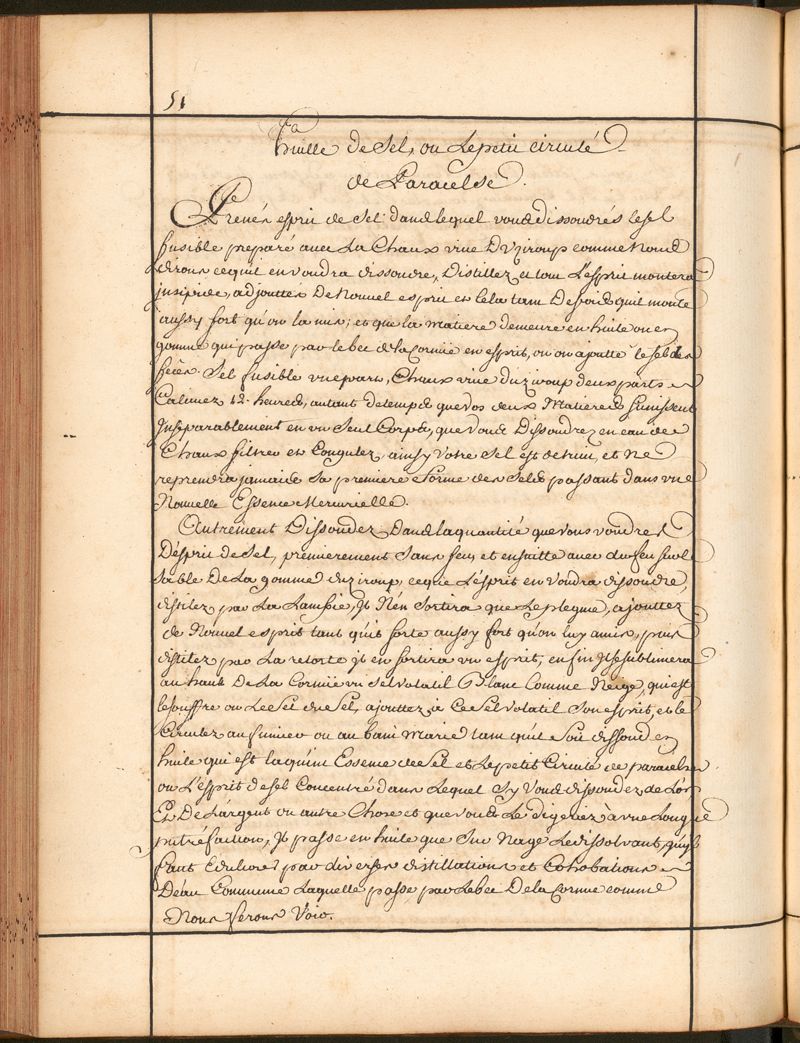 51
huille de Sel, ou Le petit circulé
de Paracelse.
Prenés esprit de Sel dans lequel vous dissoudrés le sel
fusible preparé avec La Chaux vive comme Nous
dirons ce qu'il en voudra dissoudre, Distillez et tout L'esprit montera
jnsipide, adjouttés De Nouvel esprit et cela tant De fois qu'il monte
aussy fort qu'on la mis; et que la matiere demeure en huile ou en
gomme qui passe par le bec de la Cornüe en esprit, ou on ajoutte le sel des
Sel fusible une part, Chaux vive deux parts
Calcinez 12 heures, autant de temps que vos deux Matieres s'unissent
jnseparablement en un Seul Corps, que vous Dissoudrez en eau de
Chaux filtrez et Congulez, ainsy votre Sel est detruit, et Ne
reprendra jamais Sa premiere forme des Sels passant dans une
Nouvelle Essence Mercurielle.
Autrement Dissoudez Dans la quantité que vous voudrez
D'esprit de Sel, premierement Sans feu, et ensuitte avec du feu sur le
Sable De La gomme, ce que L'ésprit en voudra dissoudre,
distilez par La Lampe, jl N'én Sortira que Le plegme, ajouttez
de Nouvel esprit tant qu'il sorte aussy fort qu'on luy a mis, puis
distilez par La retorte jl en sortira un esprit, en fin jl se sublimera
au haut De La Cornüe un Sel volatil Blanc Comme Neige, qui est
le souffre ou Le Sel du Sel, ajouttez à Ce Sel volatil Son esprit, et le
Circulez au fumier ou au bain Marie tant qu'il Soit dissoud en
huile qui est la quint Essence de Sel et Le petit Circulé de paracelse
ou L'ésprit de sel Concentré dans Lequel Sy Vous dissoudez de L'or
Et De L'argent ou autre Chose et que vous Le digeriez à une Longue
putréfaction, jl passe en huile que Sur Nage Le dissolvant, qu'jl
faut Edulcorer par diverses distillations et Cohobations
D'eau Commune Laquelle passe par Le bec De la Cornue comme
Nous ferons Voir.